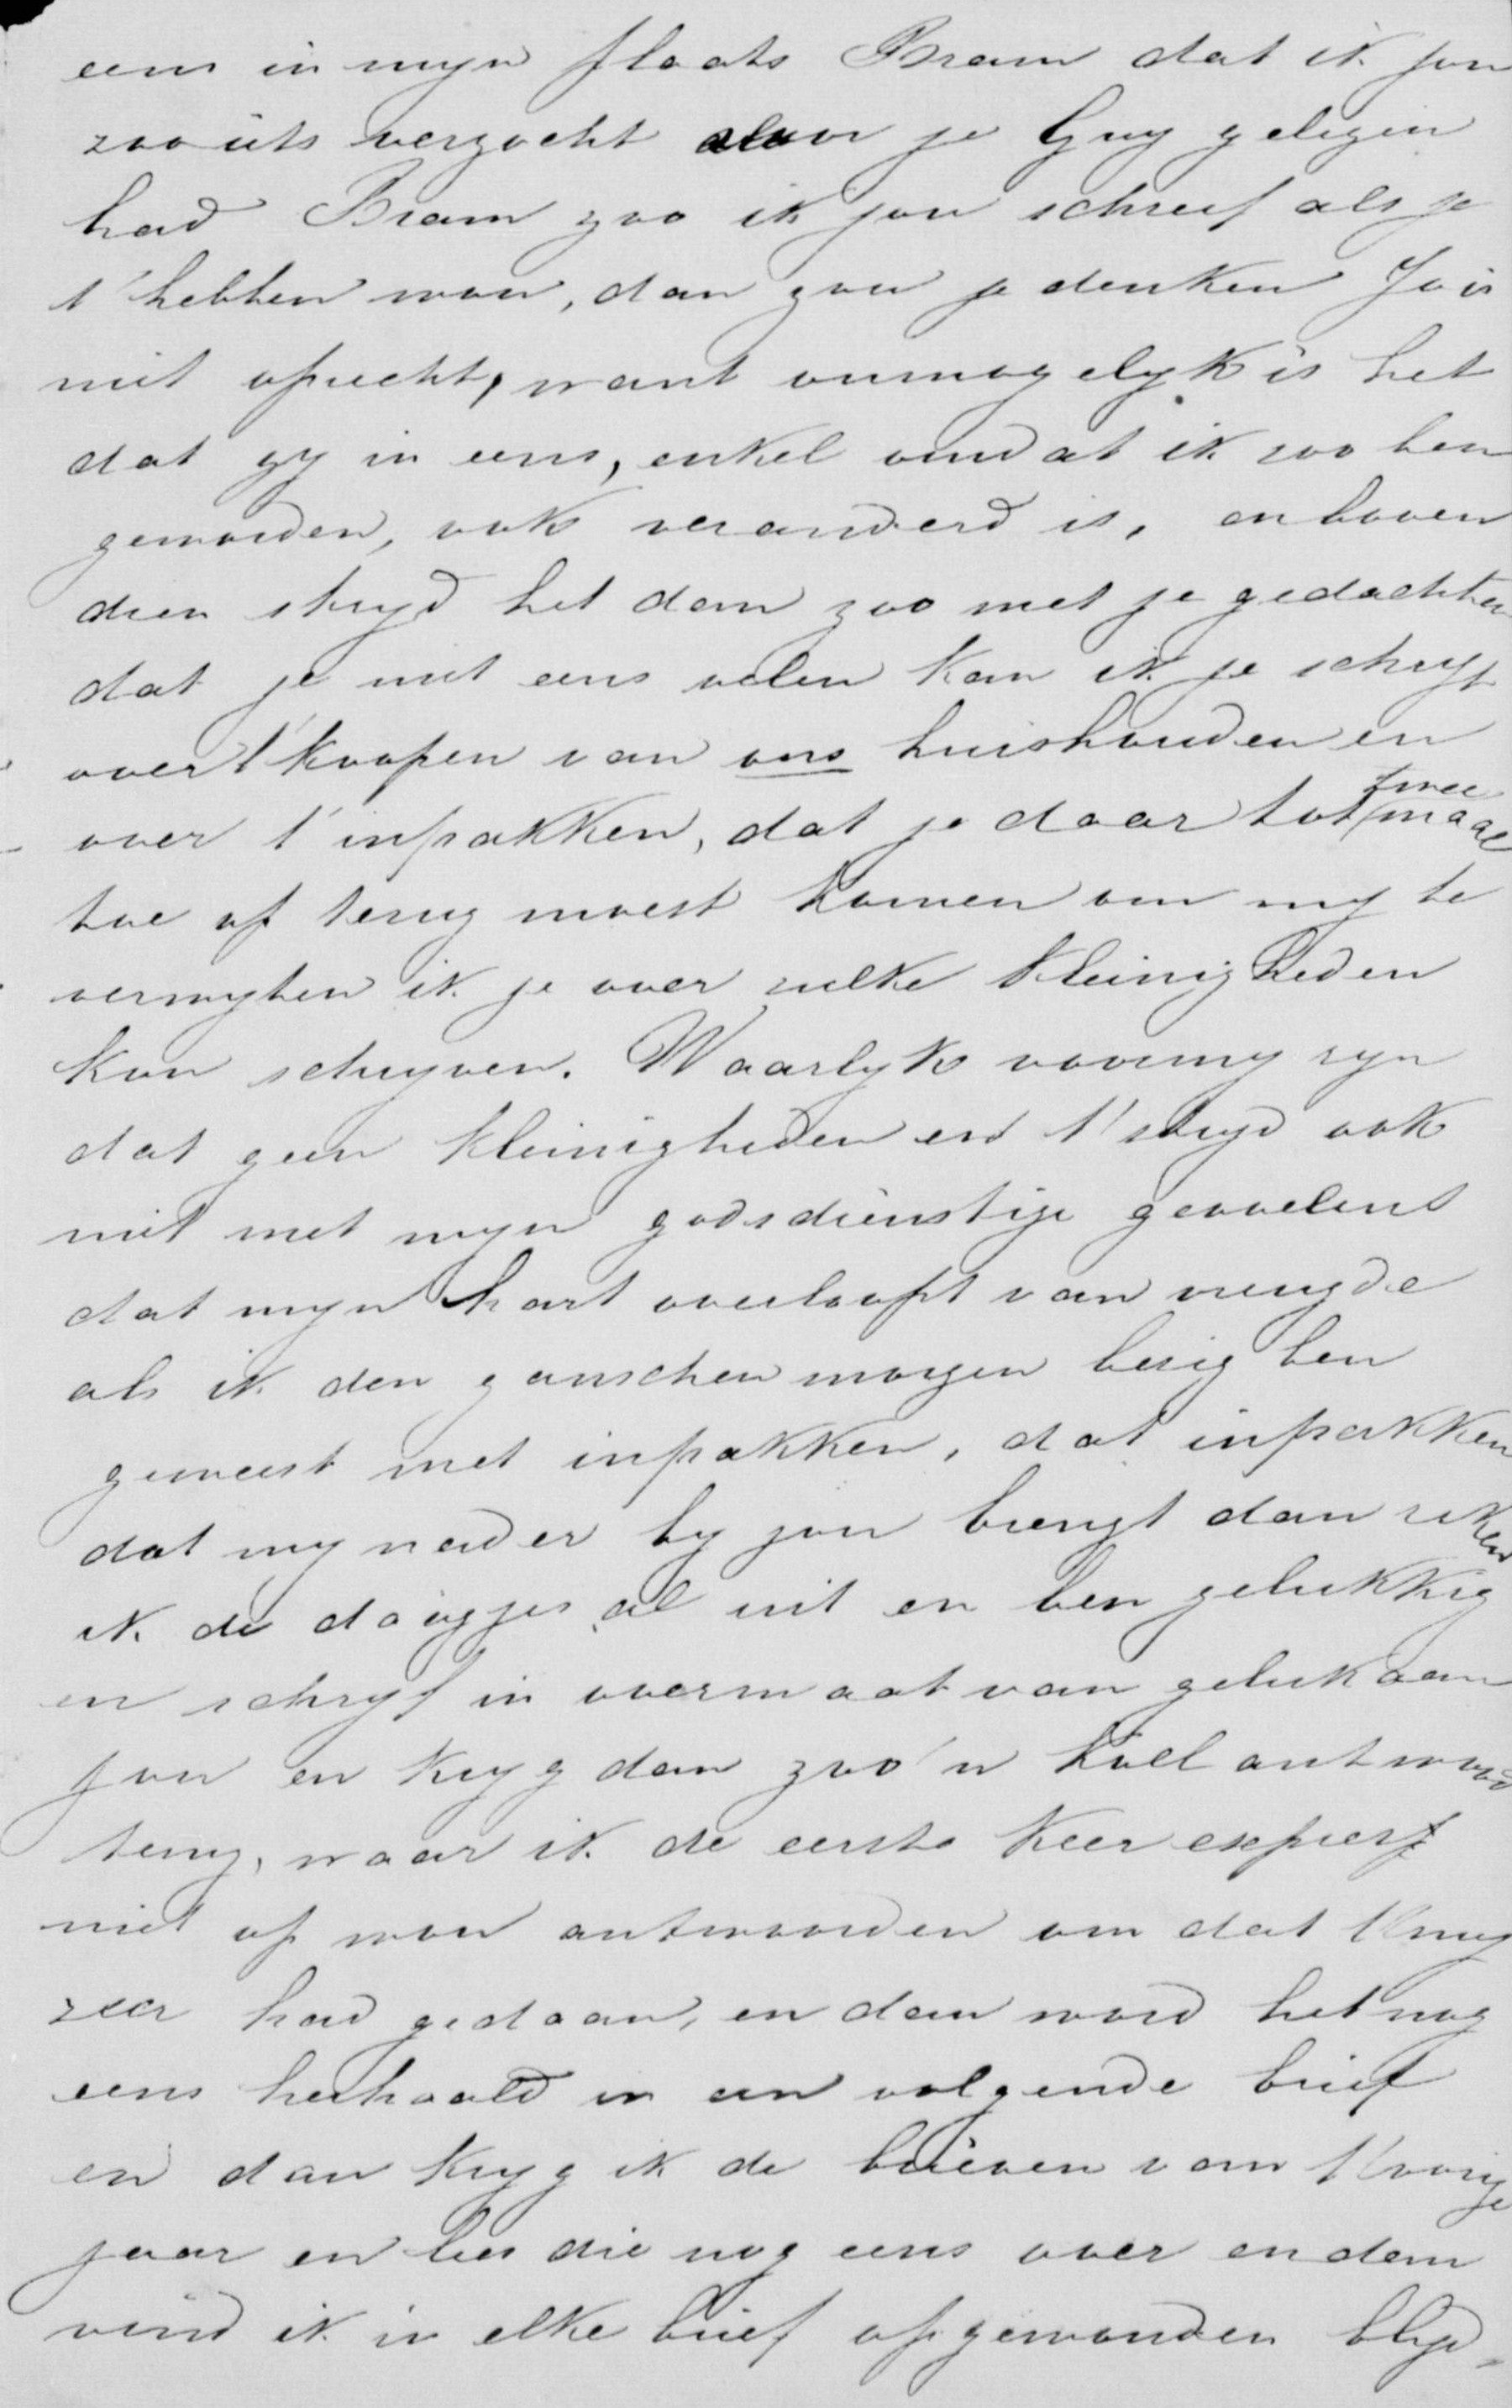 eens in myn plaats Bram dat ik jou
zoo iets verzocht door je Guy gelezen
had Bram zoo ik jou schreef als je
t' hebben wou, dan zou je denken Jo is
niet oprecht, want onmogelyk is het
dat zy in eens, enkel omdat ik zoo ben
geworden, ook veranderd is, en boven
dien stryd het dan zoo met je gedachten
dat je niet eens velen kan ik je schryf
over t' koopen van ons huishouden en
over t' inpakken, dat je daar tot twee maal
toe op terug moest komen om my te
verwyten ik je over zulke kleinigheden
kon schryven. Waarlyk voor my zyn
dat geen kleinigheden en t' stryd ook
niet met myn godsdienstige gevoelens
dat myn hart overloopt van vreugde
als ik den ganschen morgen bezig ben
geweest met inpakken, dat inpakken
dat my nader by jou brengt dan reken
ik de daagjes al uit en ben gelukkig
en schryf in overmaat van geluk aan
jou en kryg dan zoo'n koel antwoord
terug, waar ik de eerste keer expres
niet op wou antwoorden om dat t' my
zeer had gedaan, en dan word het nog
eens herhaald in een volgende brief
en dan kryg ik de brieven van t' vorige
jaar en lees die nog eens over en dan
vind ik in elke brief opgewonden blyd-